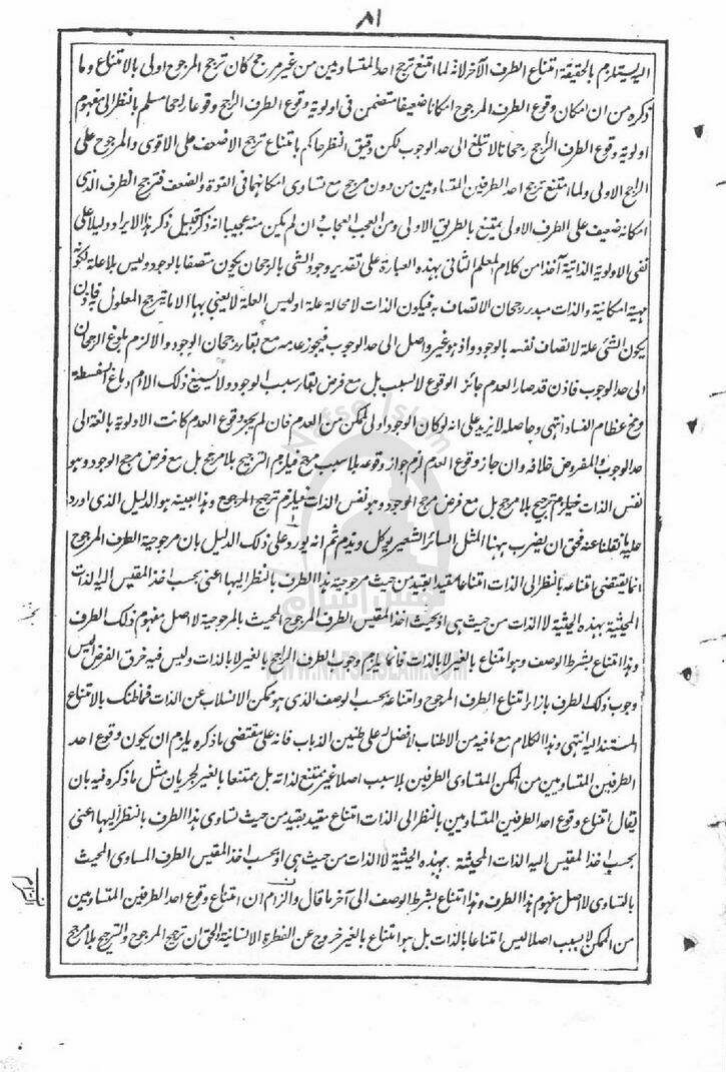 ٨١
اليه يستلزم بالحقيقة امتناع الطرف الآخر لانه لما امتنع ترجح احد المتساويين من غير مرجح كان ترجح المرجوح اولى بالامتناع وما
ذكره من ان امكان وقوع الطرف المرجوح امكانا ضعيفا متضمن فى اولوية وقوع الطرف الراجح وقوعا راجحا مسلم بالنظر الى مفهوم
اولوية وقوع الطرف الراجح رجحانا لا تبلغ الى حد الوجوب لكن دقيق النظر حاكم بامتناع ترجح الاضعف على الاقوى والمرجوح على
الراجح الاولى ولما امتنع ترجح احد الطرفين المتساويين من دون مرجح مع تساوى امكانهما فى القوة والضعف فترجح الطرف الذى
امكانه ضعيف على الطرف الاولى يمتنع بالطريق الاولى ومن العجب العجاب وان لم يكن منه عجيبا انه ذكر قبيل ذكر هذا الايراد دليلا على
نفى الاولوية الذاتية آخذا من كلام المعلم الثانى بهذه العبارة على تقدير وجود الشى بالرجحان يكون متصفا بالوجود وليس بلا علة لكونه
مهية امكانية والذات مبدء رجحان الاتصاف به فيكون الذات لا محالة علة اوليس العلة لا يعنى بها الا ما يترجح المعلول به فاذن
يكون الشى علة لاتصاف نفسه بالوجود واذ هو غير واصل الى حد الوجوب فيجوز عدمه مع بقاء رجحان الوجود والا لزم بلوغ الرجحان
الى حد الوجوب فاذن قد صار العدم جائز الوقوع لا بسبب بل مع فرض بقاء سبب الوجود ولا يسيغ ذلك الا ادم دباغ السفسطة
ومخ عظام الفساد انتهى وحاصله لا يزيد على انه لو كان الوجود اولى للممكن من العدم فان لم يجز وقوع العدم كانت الاولوية بالغة الى
حد الوجوب والمفروض خلافه وان جاز وقوع العدم لزم جواز وقوعه بلا سبب مرجح فيلزم الترجيح بلا مرجح بل مع فرض مرجح الوجود وهو
نفس الذات فيلزم ترجيح بلا مرجح بل مع فرض مرجح الوجود وهو نفس الذات فيلزم ترجيح المرجوح وهذا بعينه هو الدليل الذى اورد
عليه ما نقلنا عنه فحق ان يضرب ههنا المثل السائر الشعير يوكل ويذم ثم انه يورد على ذلك الدليل بان مرجوحية الطرف المرجوح
انما يقتضى امتناعه بالنظر الى الذات امتناعا مقيد بقيد من حيث مرجوحية هذا الطرف بالنظر اليها اعنى بحسب اخذ المقيس اليه الذات
المحيثية بهذه الحيثية لا الذات من حيث هى او بحيث اخذ المقيس الطرف المرجوح المحيث بالمرجوحية لا اصل مفهوم ذلك الطرف
وهذا امتناع بشرط الوصف وهو امتناع بالغير لا بالذات فانما يلزم وجوب الطرف الراجح بالغير لا بالذات وليس فيه خرق الفرض اليس
وجوب ذلك الطرف بازاء امتناع الطرف المرجوح وامتناعه بحسب الوصف الذى هو ممكن الانسلاب عن الذات فما ظنك بالامتناع
المستند اليه انتهى وهذا الكلام مع ما فيه من الاطناب لا فضل له على طنين الذباب فانه على مقتضى ما ذكره يلزم ان يكون وقوع احد
الطرفين المتساويين من الممكن المتساوى الطرفين بلا سبب اصلا غير ممتنع لذاته بل ممتنعا بالغير لجريان مثل ما ذكره فيه بان
يقال امتناع وقوع احد الطرفين المتساويين بالنظر الى الذات امتناع مقيد بقيد من حيث تساوى هذا الطرف بالنظر اليها اعنى
بحسب اخذ المقيس اليه الذات المحيثة بهذه الحيثية لا الذات من حيث هى او بحسب اخذ المقيس الطرف المساوى المحيث
بالتساوى لا اصل مفهوم هذا الطرف وهذا امتناع بشرط الوصف الى آخر ما قال والزام ان امتناع وقوع احد الطرفين المتساويين
من الممكن لا بسبب اصلا ليس امتناعا بالذات بل هو امتناع بالغير خروج عن الفطرة الانسانية الحق ان ترجح المرجوح والترجيح بلا مرجح
WWW.NAFSEISLAM.COM